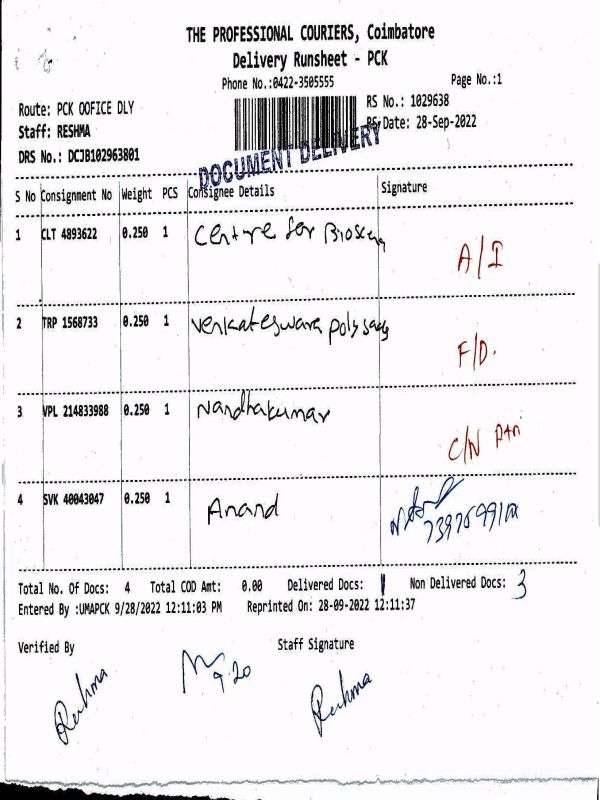 THE PROFESSIONAL COURIERS, Coimbatore
Delivery Runsheet - PCK
Phone No.:0422-3505555
Page No.:1
Route: PCK OOFICE DLY
RS No.: 1029638
Staff: RESHMA
RS Date: 28-Sep-2022
DRS No.: DCJB102963801
DOCUMENT DELIVERY
S No Consignment No Weight PCS Consignee Details Signature
1 CLT 4893622 0.250 1 Centre for A/I
2 TRP 1568733 0.250 1 Venkateswara poly F/D.
3 VPL 214833988 0.250 1 Nandhakumar C/N
4 SVK 40043047 0.250 1 Anand
Total No. Of Docs: 4 Total COD Amt: 0.00 Delivered Docs: 1 Non Delivered Docs: 3
Entered By :UMAPCK 9/28/2022 12:11:03 PM Reprinted On: 28-09-2022 12:11:37
Verified By Staff Signature
9.20